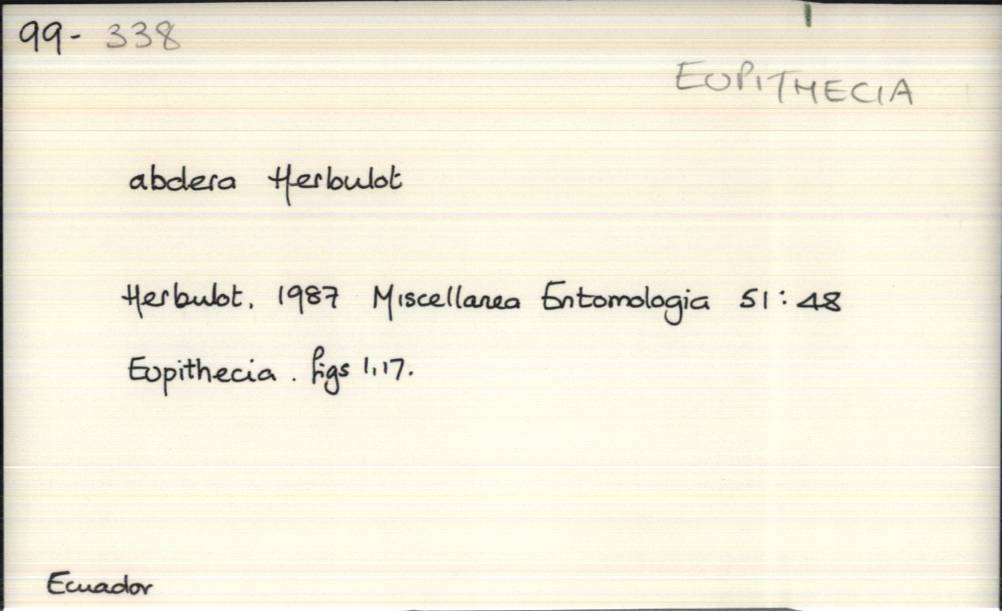 99- 338
EUPITHECIA
abdera Herbulot
Herbulot. 1987 Miscellanea Entomologia 51: 48
Eupithecia. figs 1,17.
Ecuador